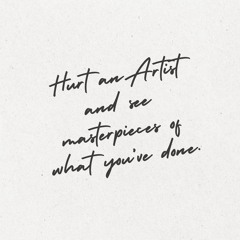 Hurt an Artist
and see
masterpieces of
what you've done.